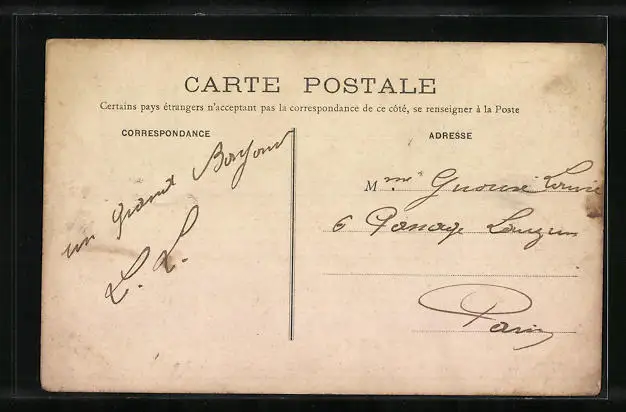 CARTE POSTALE
Certains pays étrangers n'acceptant pas la correspondance de ce côté, se renseigner à la Poste
CORRESPONDANCE
un grand Bonjour
L. L.
ADRESSE
Mme Louise
6 Passage
Paris